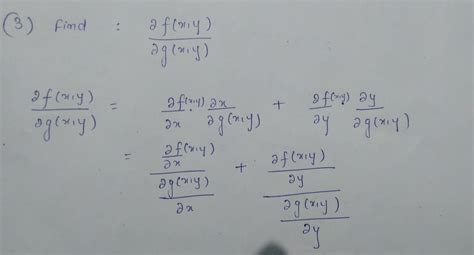 (3) find : ∂f(x,y) / ∂g(x,y)
∂f(x,y) / ∂g(x,y) = ∂f(x,y)/∂x · ∂x/∂g(x,y) + ∂f(x,y)/∂y ∂y/∂g(x,y)
= (∂f(x,y)/∂x) / (∂g(x,y)/∂x) + (∂f(x,y)/∂y) / (∂g(x,y)/∂y)